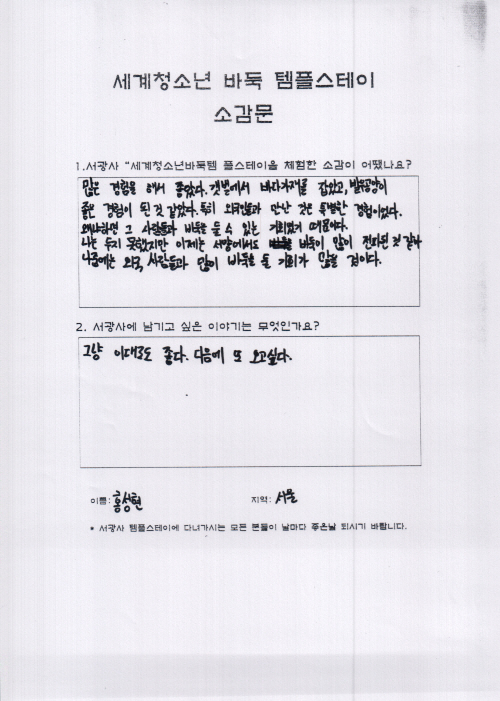 세계청소년 바둑 템플스테이
소감문
1.서광사 "세계청소년바둑템 플스테이을 체험한 소감이 어땠나요?
많은 경험을 해서 좋았다. 갯벌에서 바다가재를 잡았고, 발우공양이
좋은 경험이 된 것 같았다. 특히 외국인들과 만난 것은 특별한 경험이었다.
왜냐하면 그 사람들과 바둑을 둘 수 있는 기회였기 때문이다.
나는 두지 못했지만 이제는 서양에서도 바둑이 많이 전파된 것 같다
나중에는 외국 사람들과 많이 바둑을 둘 기회가 많을 것이다.
2. 서광사에 남기고 싶은 이야기는 무엇인가요?
그냥 이대로도 좋다. 다음에 또 오고싶다.
이름: 홍성현 지역: 서울
* 서광사 템플스테이에 다녀가시는 모든 분들이 날마다 좋은날 되시기 바랍니다.